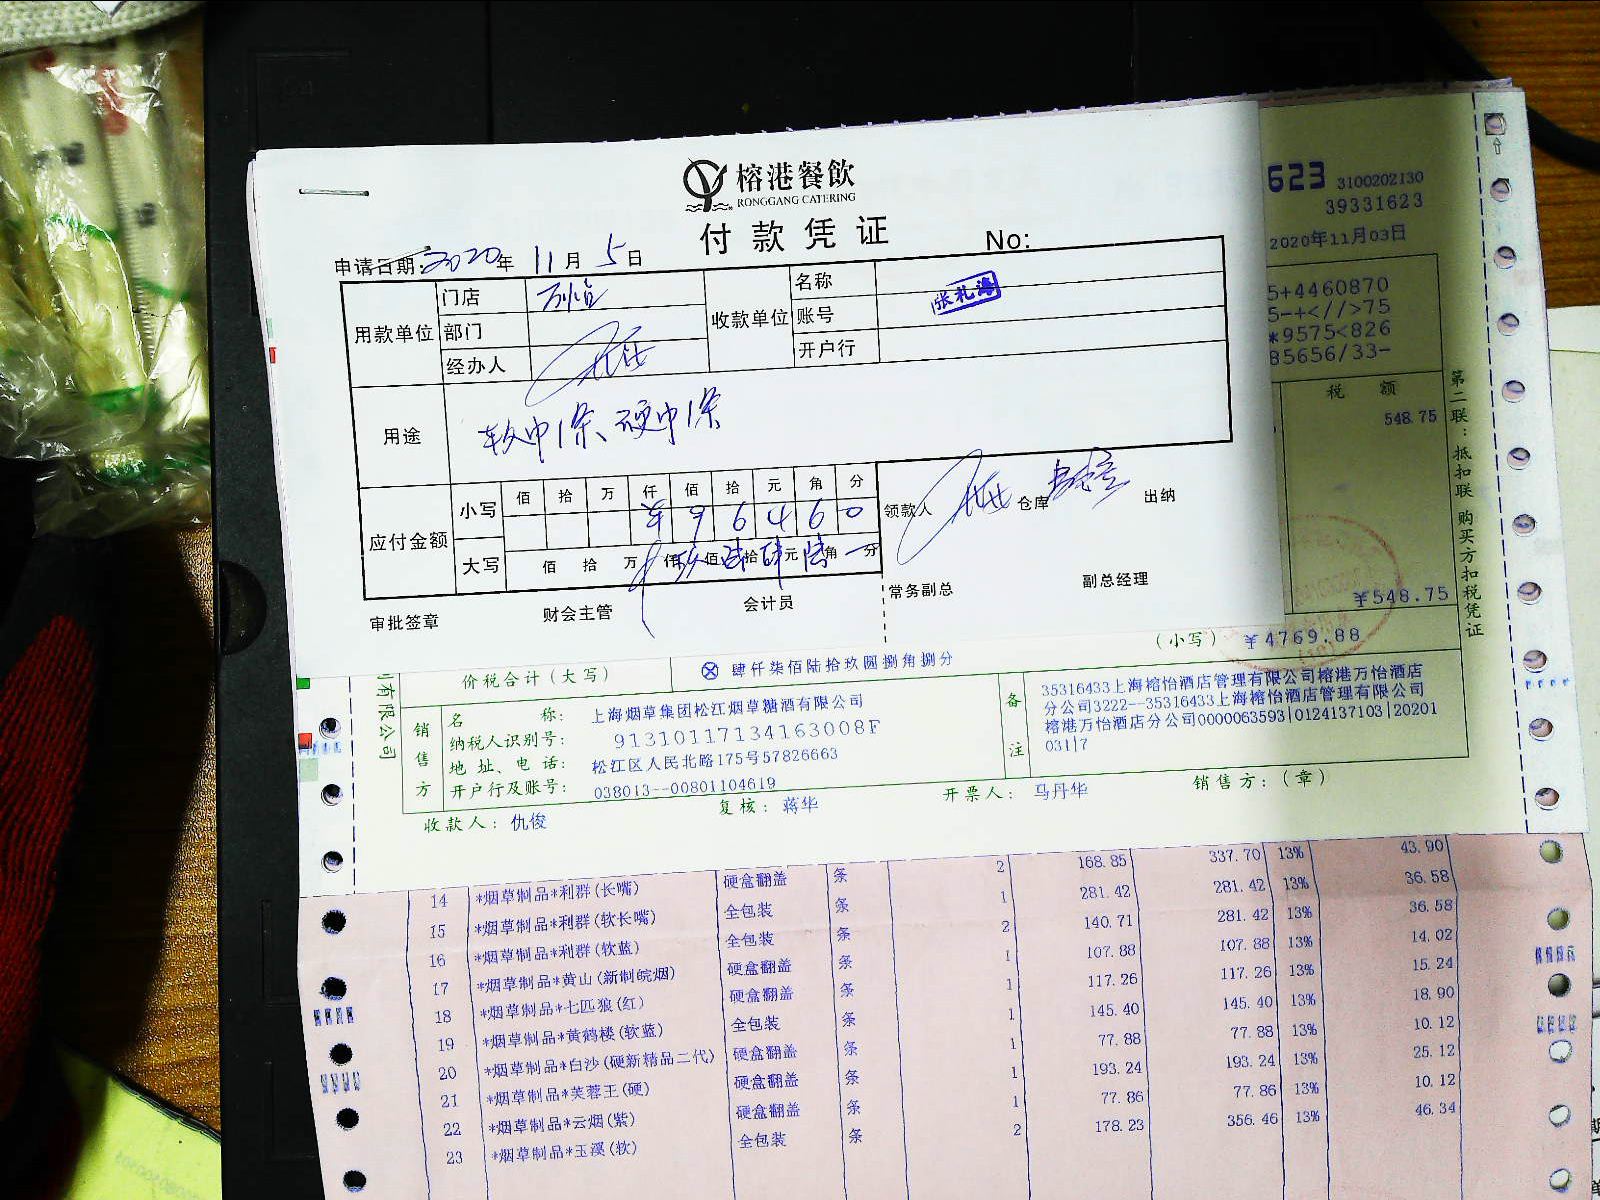 榕港餐飲
RONGGANG CATERING
付款凭证
No:
申请日期: 2020年 11月 5日
用款单位 门店 万怡 收款单位 名称
部门 账号
经办人 开户行
张礼涛
用途 软中1条、硬中1条
应付金额 小写 佰 拾 万 仟 佰 拾 元 角 分
¥ 9 6 4 6 0
大写 佰 拾 万 仟 玖佰 陆拾 肆元 陆角 一分
领款人 仓库 出纳
审批签章 财会主管 会计员 常务副总 副总经理
623 3100202130
39331623
2020年11月03日
5+4460870
5-+<//>75
*9575<826
85656/33-
税 额
548.75
¥548.75
第二联：抵扣联 购买方扣税凭证
价税合计（大写） ⊗ 肆仟柒佰陆拾玖圆捌角捌分 （小写） ¥4769.88
有限公司
销售方
名 称: 上海烟草集团松江烟草糖酒有限公司
纳税人识别号: 91310117134163008F
地址、电话: 松江区人民北路175号57826663
开户行及账号: 038013--00801104619
备注
35316433上海榕怡酒店管理有限公司榕港万怡酒店
分公司3222--35316433上海榕怡酒店管理有限公司
榕港万怡酒店分公司0000063593|0124137103|20201
031|7
收款人: 仇俊 复核: 蒋华 开票人: 马丹华 销售方:（章）
14 *烟草制品*利群(长嘴) 硬盒翻盖 条 2 168.85 337.70 13% 43.90
15 *烟草制品*利群(软长嘴) 全包装 条 1 281.42 281.42 13% 36.58
16 *烟草制品*利群(软蓝) 全包装 条 2 140.71 281.42 13% 36.58
17 *烟草制品*黄山(新制皖烟) 硬盒翻盖 条 1 107.88 107.88 13% 14.02
18 *烟草制品*七匹狼(红) 硬盒翻盖 条 1 117.26 117.26 13% 15.24
19 *烟草制品*黄鹤楼(软蓝) 全包装 条 1 145.40 145.40 13% 18.90
20 *烟草制品*白沙(硬新精品二代) 硬盒翻盖 条 1 77.88 77.88 13% 10.12
21 *烟草制品*芙蓉王(硬) 硬盒翻盖 条 1 193.24 193.24 13% 25.12
22 *烟草制品*云烟(紫) 硬盒翻盖 条 1 77.86 77.86 13% 10.12
23 *烟草制品*玉溪(软) 全包装 条 2 178.23 356.46 13% 46.34